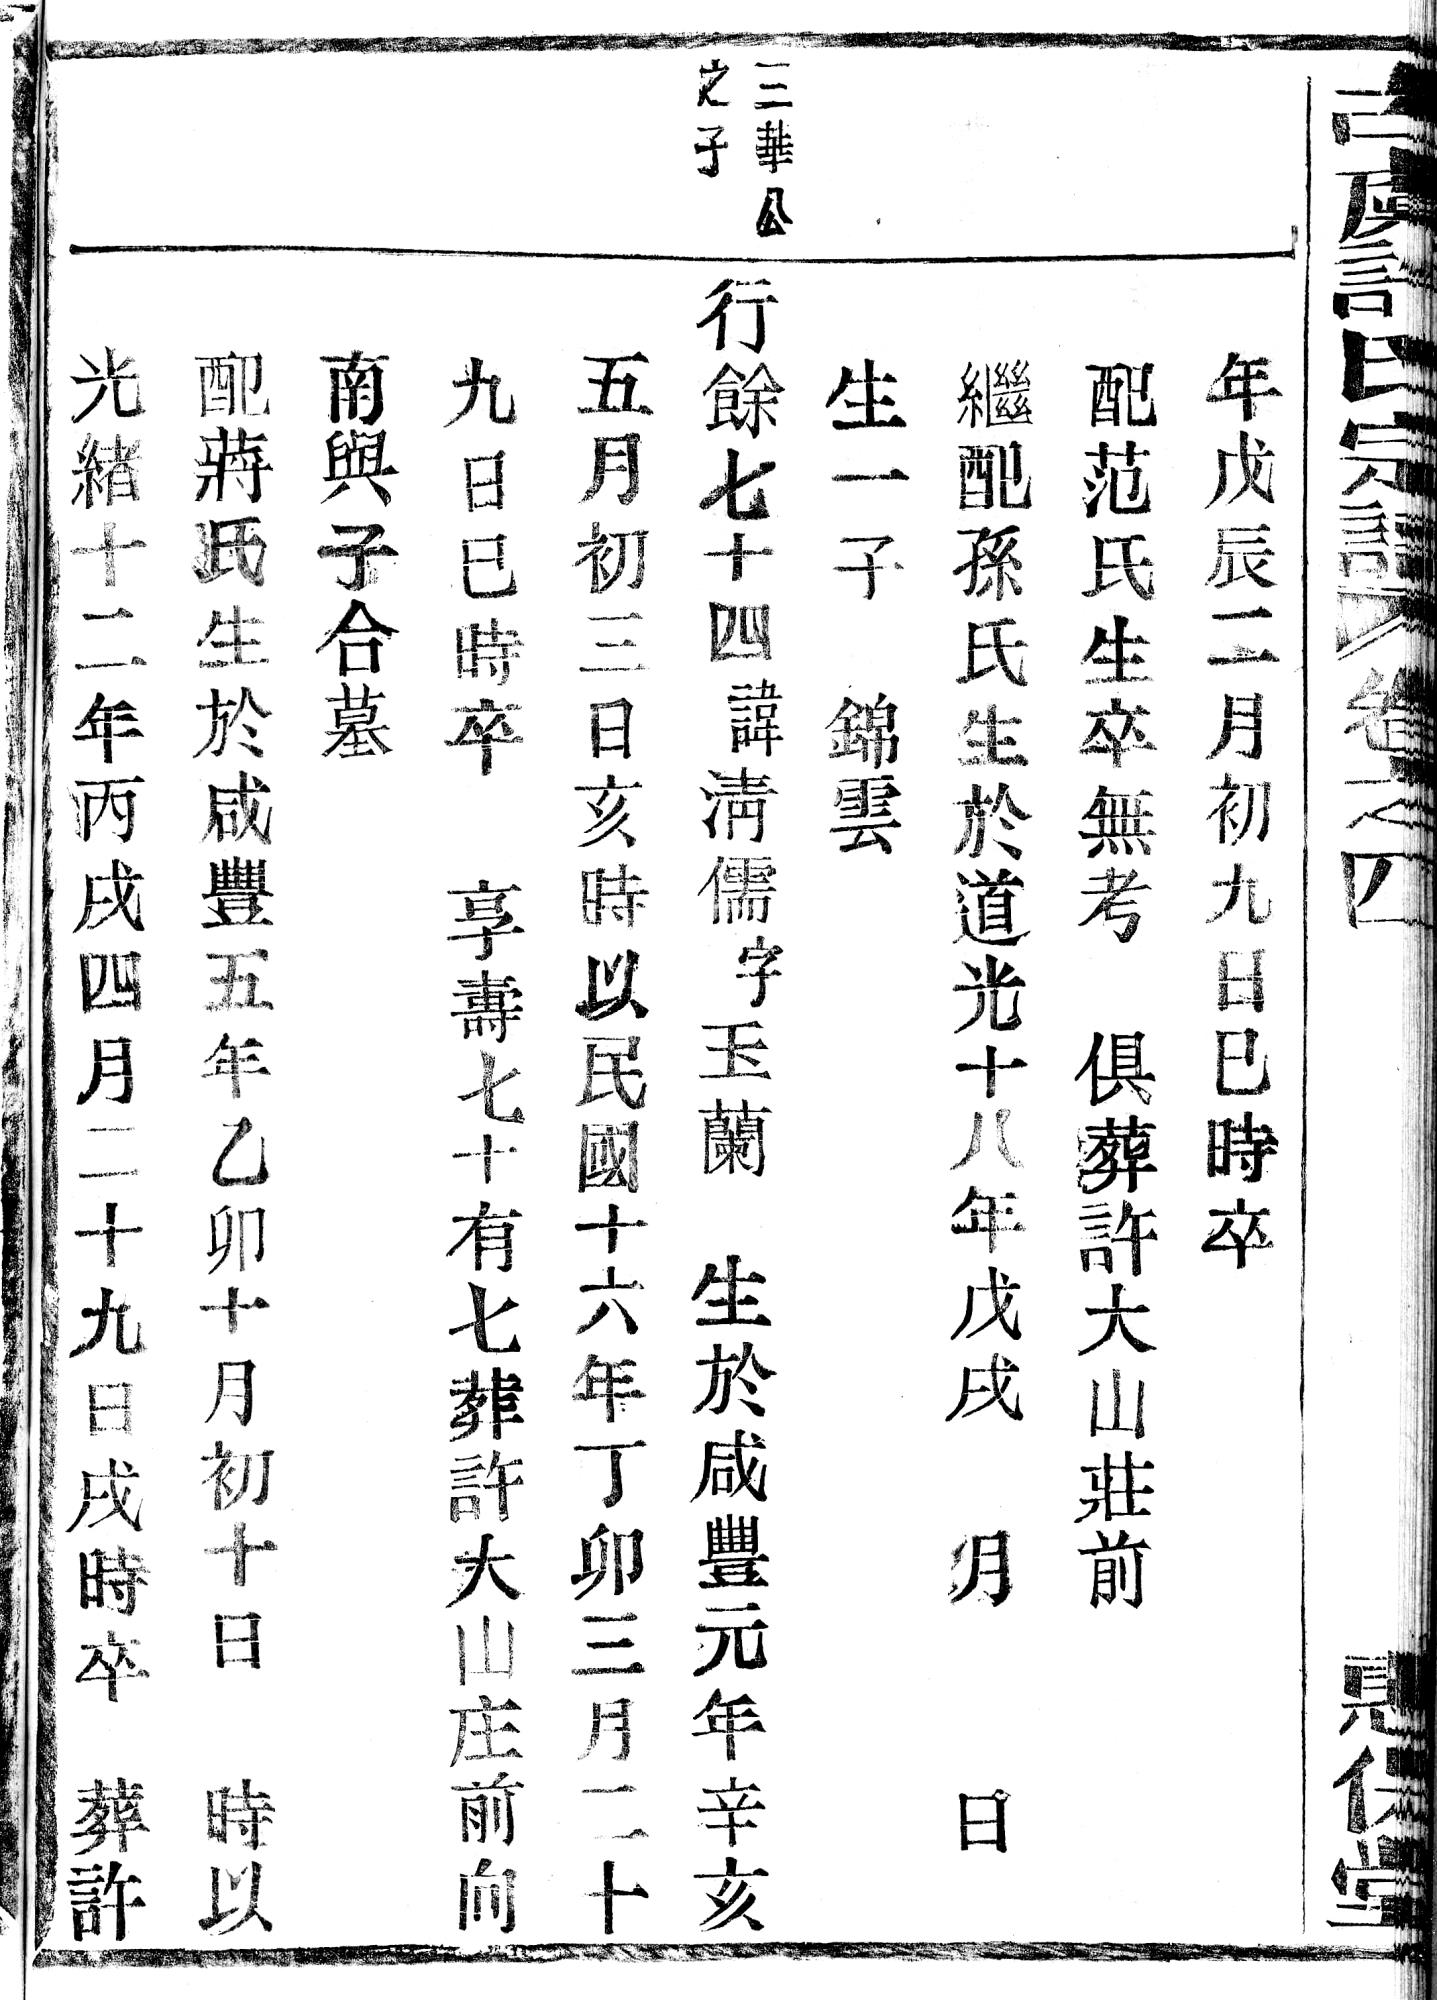 古虞許氏宗譜 卷之四 惠保堂
年戊辰二月初九日巳時卒
配范氏生卒無考 俱葬許大山莊前
繼配孫氏生於道光十八年戊戌 月 日
生一子 錦雲
三華公
之子
行餘七十四諱淸儒字玉蘭 生於咸豐元年辛亥
五月初三日亥時以民國十六年丁卯三月二十
九日巳時卒 享壽七十有七葬許大山庄前向
南與子合墓
配蔣氏生於咸豐五年乙卯十月初十日 時以
光緒十二年丙戌四月二十九日戌時卒 葬許